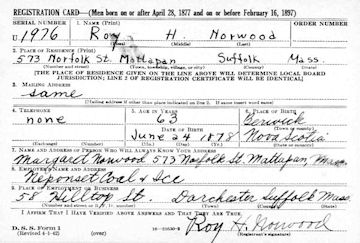 REGISTRATION CARD—(Men born on or after April 28, 1877 and on or before February 16, 1897)
SERIAL NUMBER 1. NAME (Print) ORDER NUMBER
U 1976 Roy H. Norwood
(First) (Middle) (Last)
2. PLACE OF RESIDENCE (Print)
573 Norfolk St. Mattapan Suffolk Mass.
(Number and street) (Town, township, village, or city) (County) (State)
[THE PLACE OF RESIDENCE GIVEN ON THE LINE ABOVE WILL DETERMINE LOCAL BOARD
JURISDICTION; LINE 2 OF REGISTRATION CERTIFICATE WILL BE IDENTICAL]
3. MAILING ADDRESS
same
[Mailing address if other than place indicated on line 2. If same insert word same]
4. TELEPHONE 5. AGE IN YEARS 6. PLACE OF BIRTH
none 63 Berwick
DATE OF BIRTH (Town or county)
June 24 1878 Nova Scotia
(Exchange) (Number) (Mo.) (Day) (Yr.) (State or country)
7. NAME AND ADDRESS OF PERSON WHO WILL ALWAYS KNOW YOUR ADDRESS
Margaret Norwood 573 Norfolk St. Mattapan, Mass.
8. EMPLOYER'S NAME AND ADDRESS
Neponset Coal & Ice
9. PLACE OF EMPLOYMENT OR BUSINESS
58 Hilltop St. Dorchester Suffolk Mass
(Number and street or R. F. D. number) (Town) (County) (State)
I AFFIRM THAT I HAVE VERIFIED ABOVE ANSWERS AND THAT THEY ARE TRUE.
D. S. S. Form 1
(Revised 4-1-42) (over) 16—21630-2 Roy H. Norwood
(Registrant's signature)